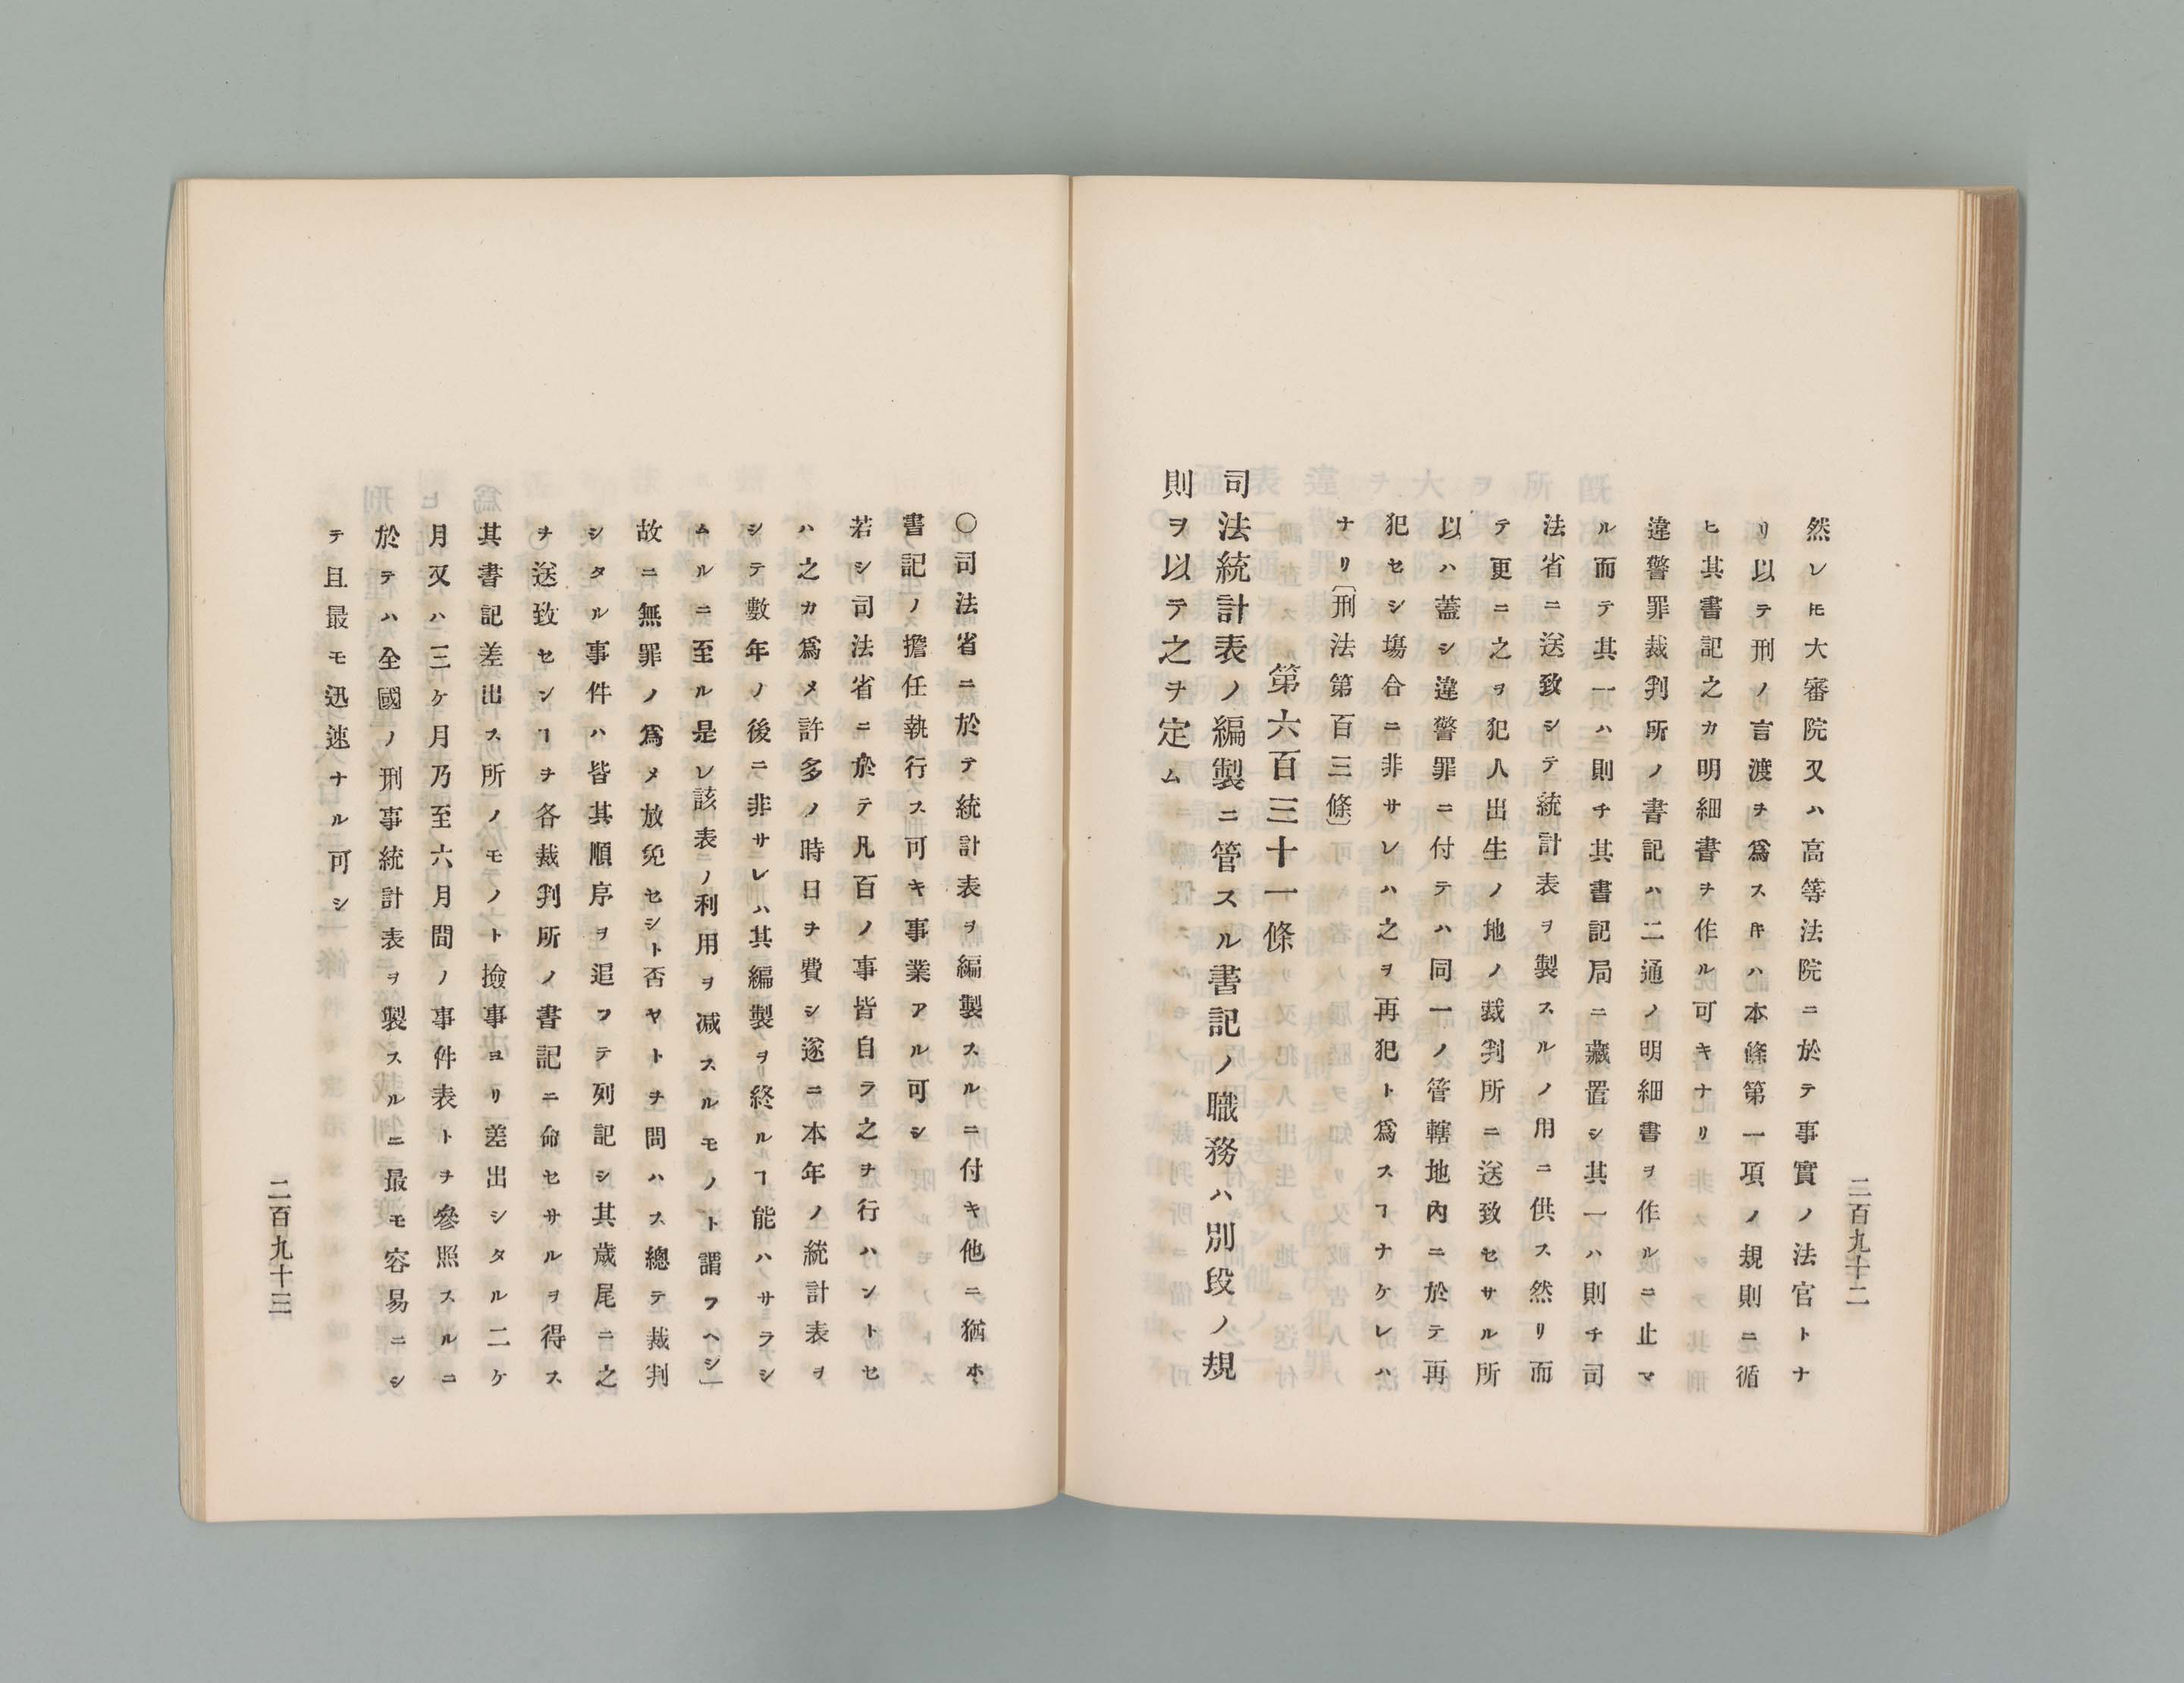 二百九十二
然レ𪜈大審院又ハ高等法院ニ於テ事實ノ法官トナ
リ以テ刑ノ言渡ヲ爲スキハ本條第一項ノ規則ニ循
ヒ其書記之カ明細書ヲ作ル可キナリ
違警罪裁判所ノ書記ハ二通ノ明細書ヲ作ルニ止マ
ル而テ其一ハ則チ其書記局ニ藏置シ其一ハ則チ司
法省ニ送致シテ統計表ヲ製スルノ用ニ供ス然リ而
テ更ニ之ヲ犯人出生ノ地ノ裁判所ニ送致セサル所
以ハ蓋シ違警罪ニ付テハ同一ノ管轄地內ニ於テ再
犯セシ塲合ニ非サレハ之ヲ再犯ト爲スヿナケレハ
ナリ〔刑法第百三條〕
第六百三十一條
司法統計表ノ編製ニ管スル書記ノ職務ハ別段ノ規
則ヲ以テ之ヲ定ム
〇司法省ニ於テ統計表ヲ編製スルニ付キ他ニ猶ホ
書記ノ擔任執行ス可キ事業アル可シ
若シ司法省ニ於テ凡百ノ事皆自ラ之ヲ行ハントセ
ハ之カ爲メ許多ノ時日ヲ費シ遂ニ本年ノ統計表ヲ
シテ數年ノ後ニ非サレハ其編製ヲ終ルヿ能ハサラシ
ムルニ至ル是レ該表ノ利用ヲ减スルモノト謂フヘシ」
故ニ無罪ノ爲メ放免セシト否ヤトヲ問ハス總テ裁判
シタル事件ハ皆其順序ヲ追フテ列記シ其歲尾ニ之
ヲ送致センヿヲ各裁判所ノ書記ニ命セサルヲ得ス
其書記差出ス所ノモノト撿事ヨリ差出シタル二ケ
月又ハ三ケ月乃至六月間ノ事件表トヲ參照スルニ
於テハ全國ノ刑事統計表ヲ製スルニ最モ容易ニシ
テ且最モ迅速ナル可シ
二百九十三